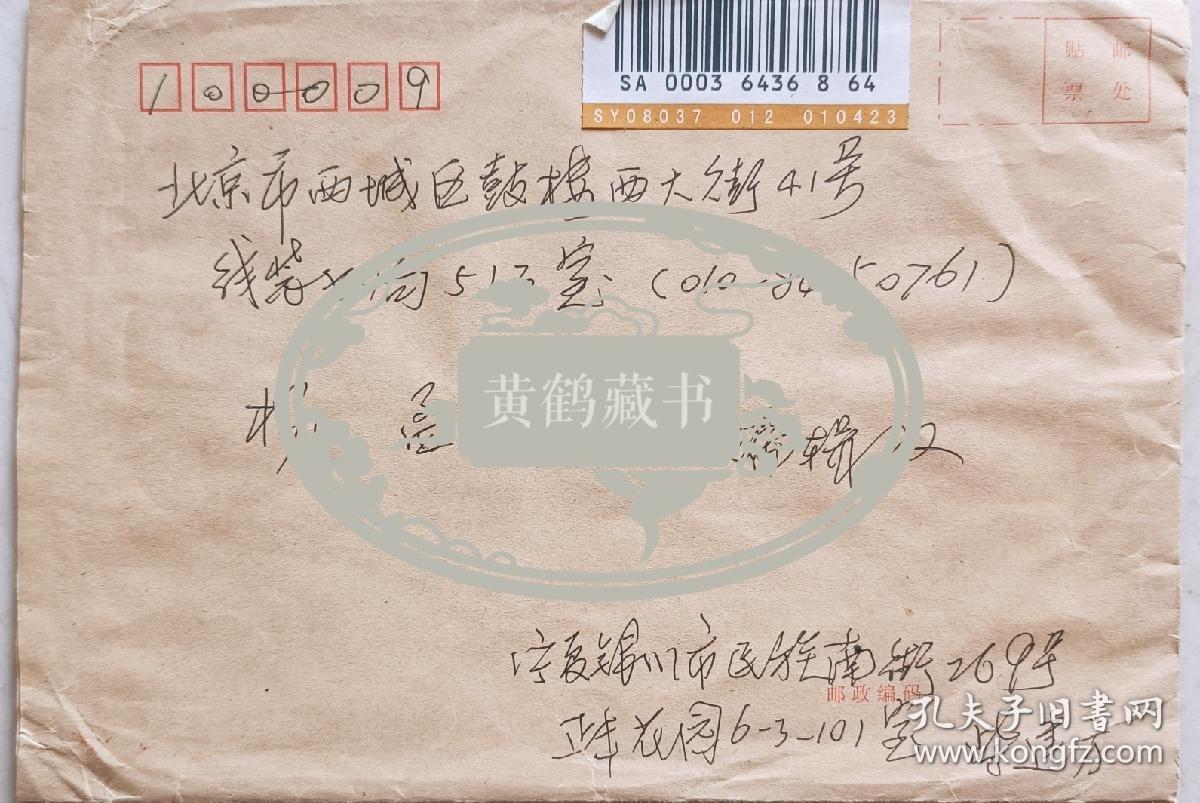 SA 0003 6436 8 64
SY08037 012 010423
100009
贴 邮
票 处
北京市西城区鼓楼西大街41号
线装书局 室
黄鹤藏书
辑
宁夏银川市民族南街269号
邮政编码
花园6-3-101室
孔夫子旧书网
www.kongfz.com